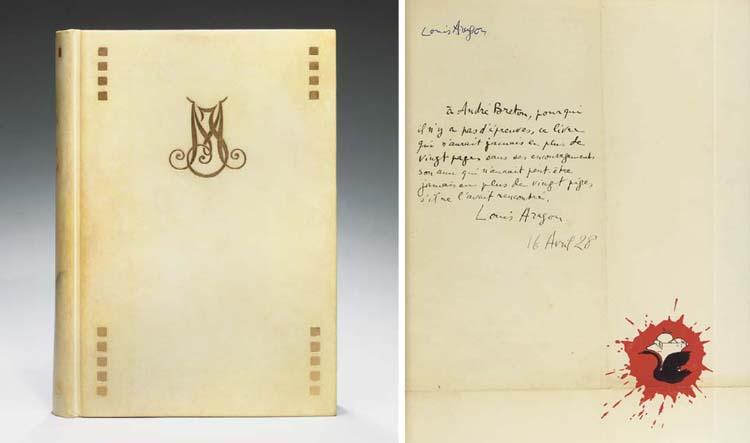 Louis Aragon
à André Breton, pour qui
il n'y a pas d'épreuves, ce livre
qui n'aurait jamais eu plus de
vingt pages sans ses encouragements
son ami qui n'aurait peut-être
jamais eu plus de vingt piges
s'il ne l'avait rencontré.
Louis Aragon
16 Avril 28